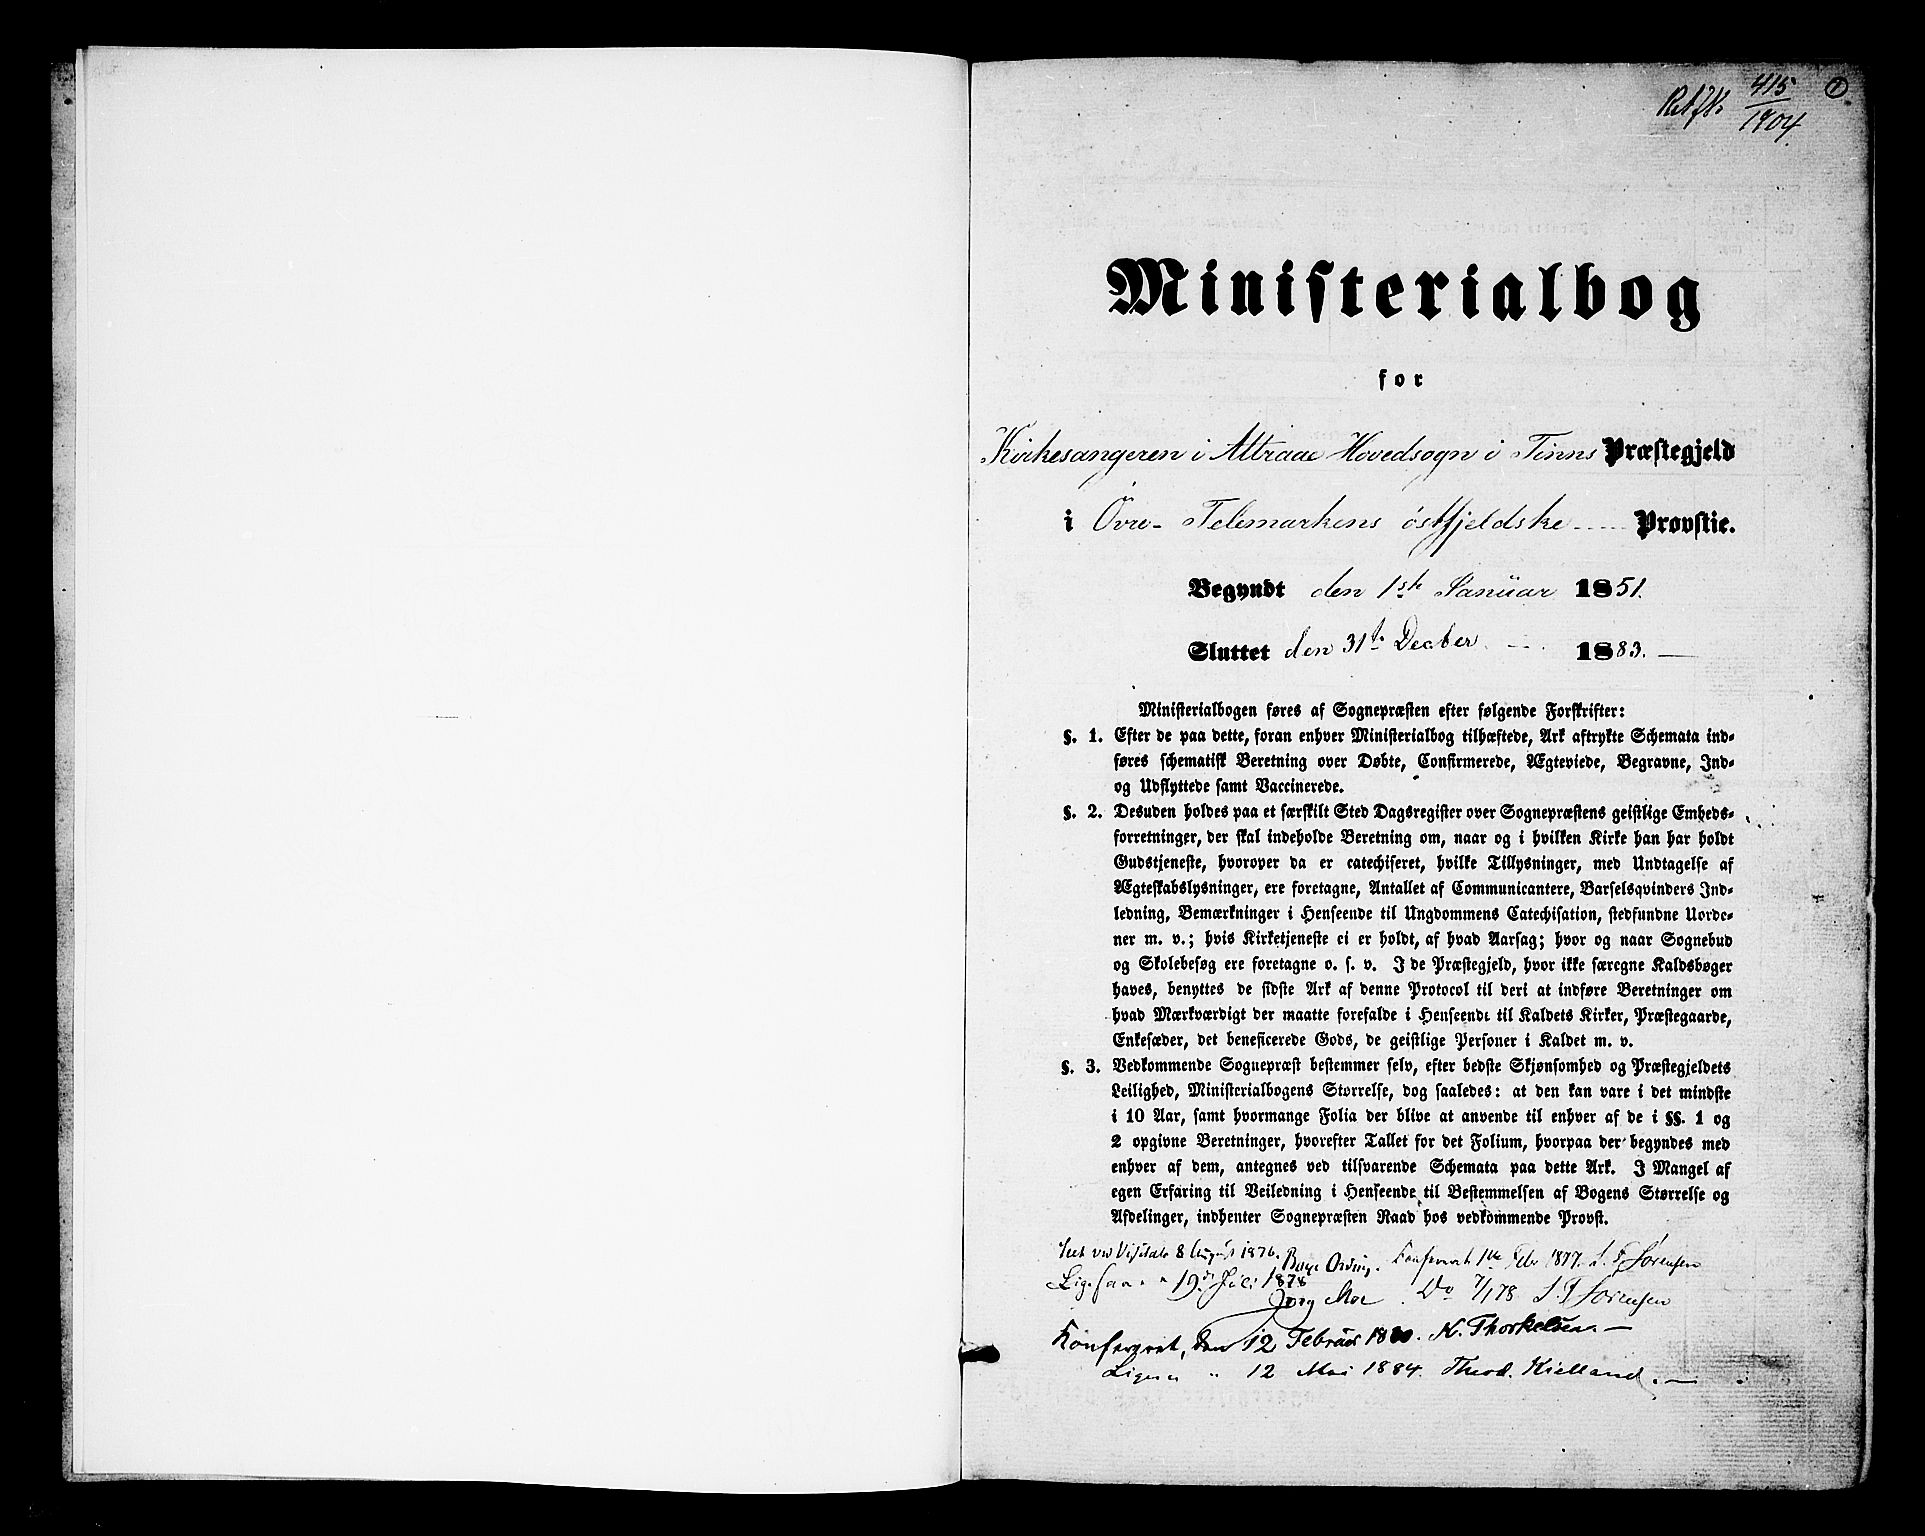 415
1904
1
Ministerialbog
for
Kirkesangeren i Attraae Hovedsogn i Tinns Præstegjeld
i Övre- Telemarkens östfjeldske Provstie.
Begyndt den 1ste Januar 1851.
Sluttet den 31te Decber 1883.
Ministerialbogen føres af Sognepræsten efter følgende Forskrifter:
§. 1. Efter de paa dette, foran enhver Ministerialbog tilhæftede, Ark aftrykte Schemata ind-
føres schematisk Beretning over Døbte, Confirmerede, Ægteviede, Begravne, Ind-
og Udflyttede samt Vaccinerede.
§. 2. Desuden holdes paa et særskilt Sted Dagsregister over Sognepræstens geistlige Embeds-
forretninger, der skal indeholde Beretning om, naar og i hvilken Kirke han har holdt
Gudstjeneste, hvorover da er catechiseret, hvilke Tillysninger, med Undtagelse af
Ægteskabslysninger, ere foretagne, Antallet af Communicantere, Barselsqvinders Ind-
ledning, Bemærkninger i Henseende til Ungdommens Catechisation, stedfundne Uorde-
ner m. v.; hvis Kirketjeneste ei er holdt, af hvad Aarsag; hvor og naar Sognebud
og Skolebesøg ere foretagne o. s. v. I de Præstegjeld, hvor ikke særegne Kaldsbøger
haves, benyttes de sidste Ark af denne Protocol til deri at indføre Beretninger om
hvad Mærkværdigt der maatte forefalde i Henseende til Kaldets Kirker, Præstegaarde,
Enkesæder, det beneficerede Gods, de geistlige Personer i Kaldet m. v.
§. 3. Vedkommende Sognepræst bestemmer selv, efter bedste Skjønsomhed og Præstegjeldets
Leilighed, Ministerialbogens Størrelse, dog saaledes: at den kan vare i det mindste
i 10 Aar, samt hvormange Folia der blive at anvende til enhver af de i §§. 1 og
2 opgivne Beretninger, hvorefter Tallet for det Folium, hvorpaa der begyndes med
enhver af dem, antegnes ved tilsvarende Schemata paa dette Ark. I Mangel af
egen Erfaring til Veiledning i Henseende til Bestemmelsen af Bogens Størrelse og
Afdelinger, indhenter Sognepræsten Raad hos vedkommende Provst.
Seet ved Visitats 8 August 1876. Konfereret 1ste Febr 1877. S. T. Sörensen
Ligesaa 19de Juli 1878 Jørg Moe. Do 7/1 78 S. T. Sörensen
Konfereret, den 12 Februar 1880. N. Thorkelsen.
Ligesaa " 12 Mai 1884. Theod. Kielland.